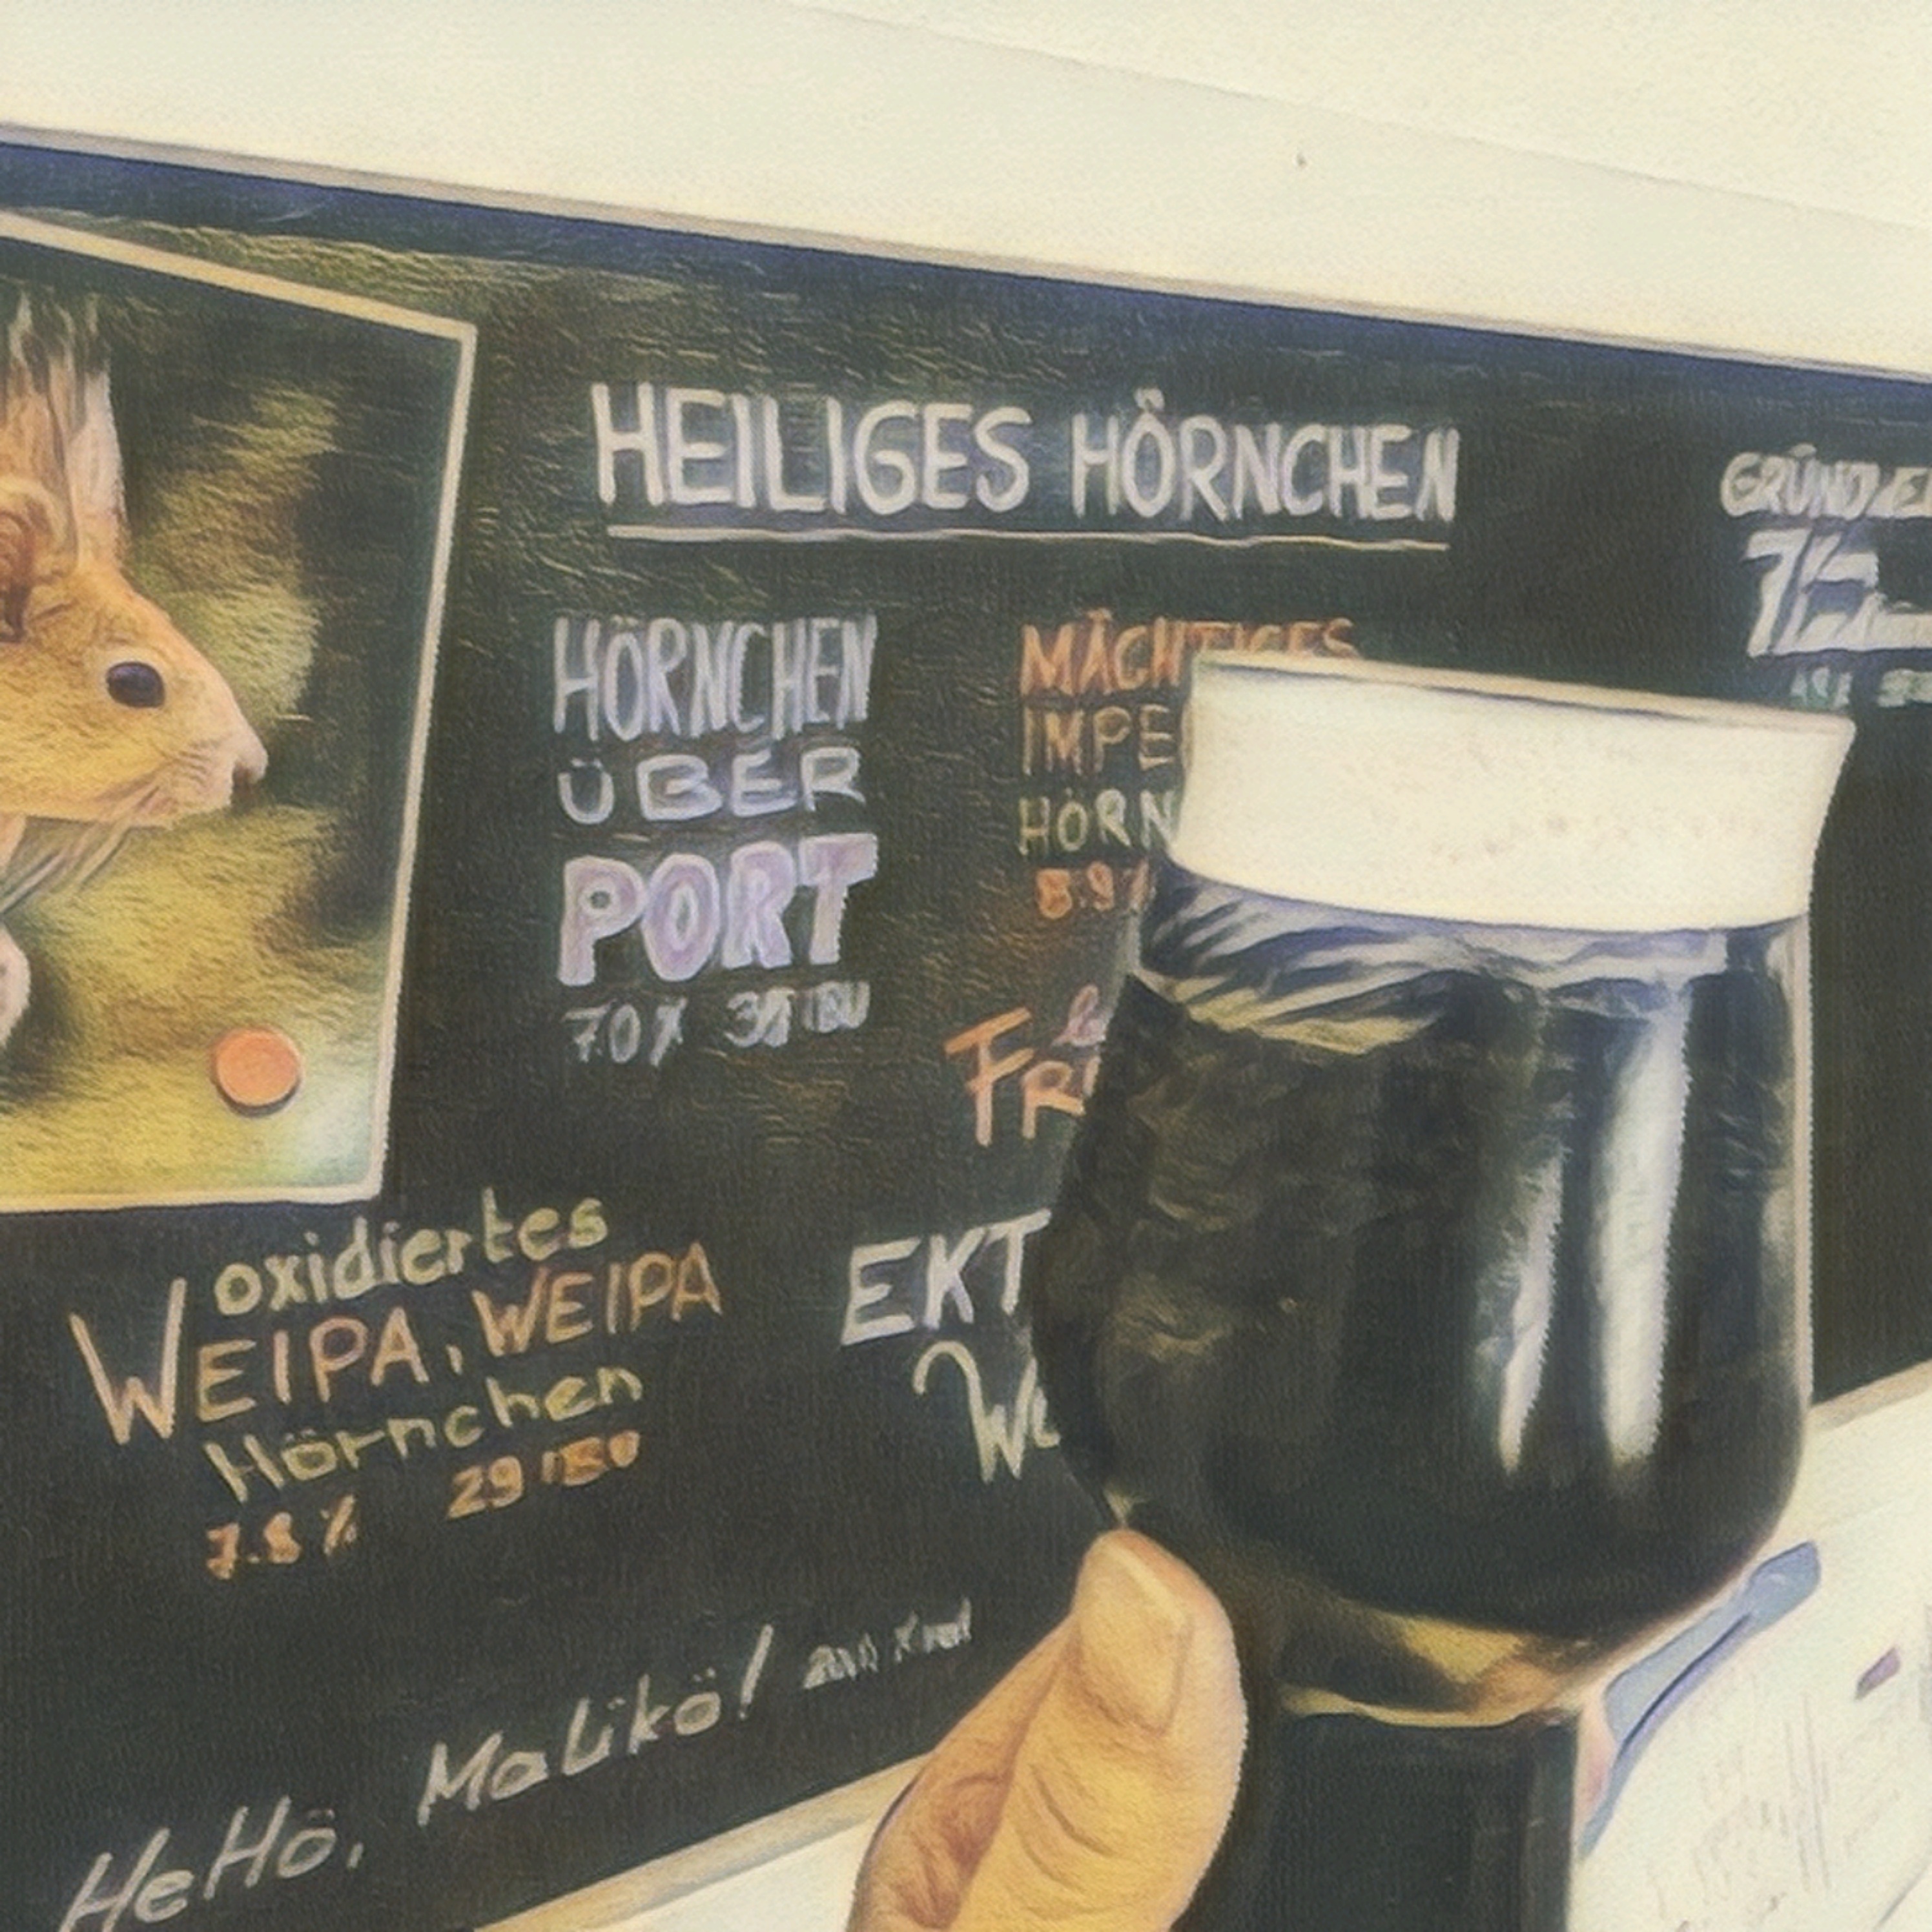 HEILIGES HÖRNCHEN
HÖRNCHEN
ÜBER
PORT
MÄCHTIGES
IMPE
HÖRN
8.9%
FRI
oxidiertes
WEIPA, WEIPA
Hörnchen
7.8% 29 IBU
EKT
HeHö, Malikö!